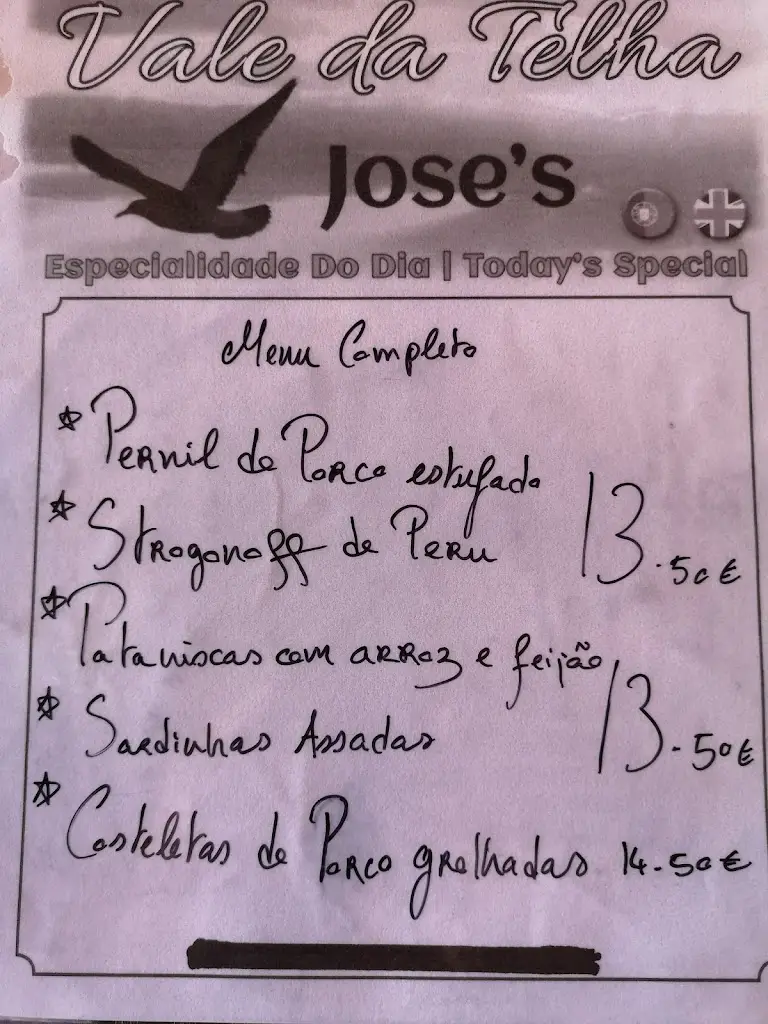 Vale da Telha
Jose's
Especialidade Do Dia | Today's Special
Menu Completo
* Pernil de Porco estufado
* Stroganoff de Peru 13.50€
* Pataniscas com arroz e feijão
* Sardinhas Assadas 13.50€
* Costeletas de Porco grelhadas 14.50€